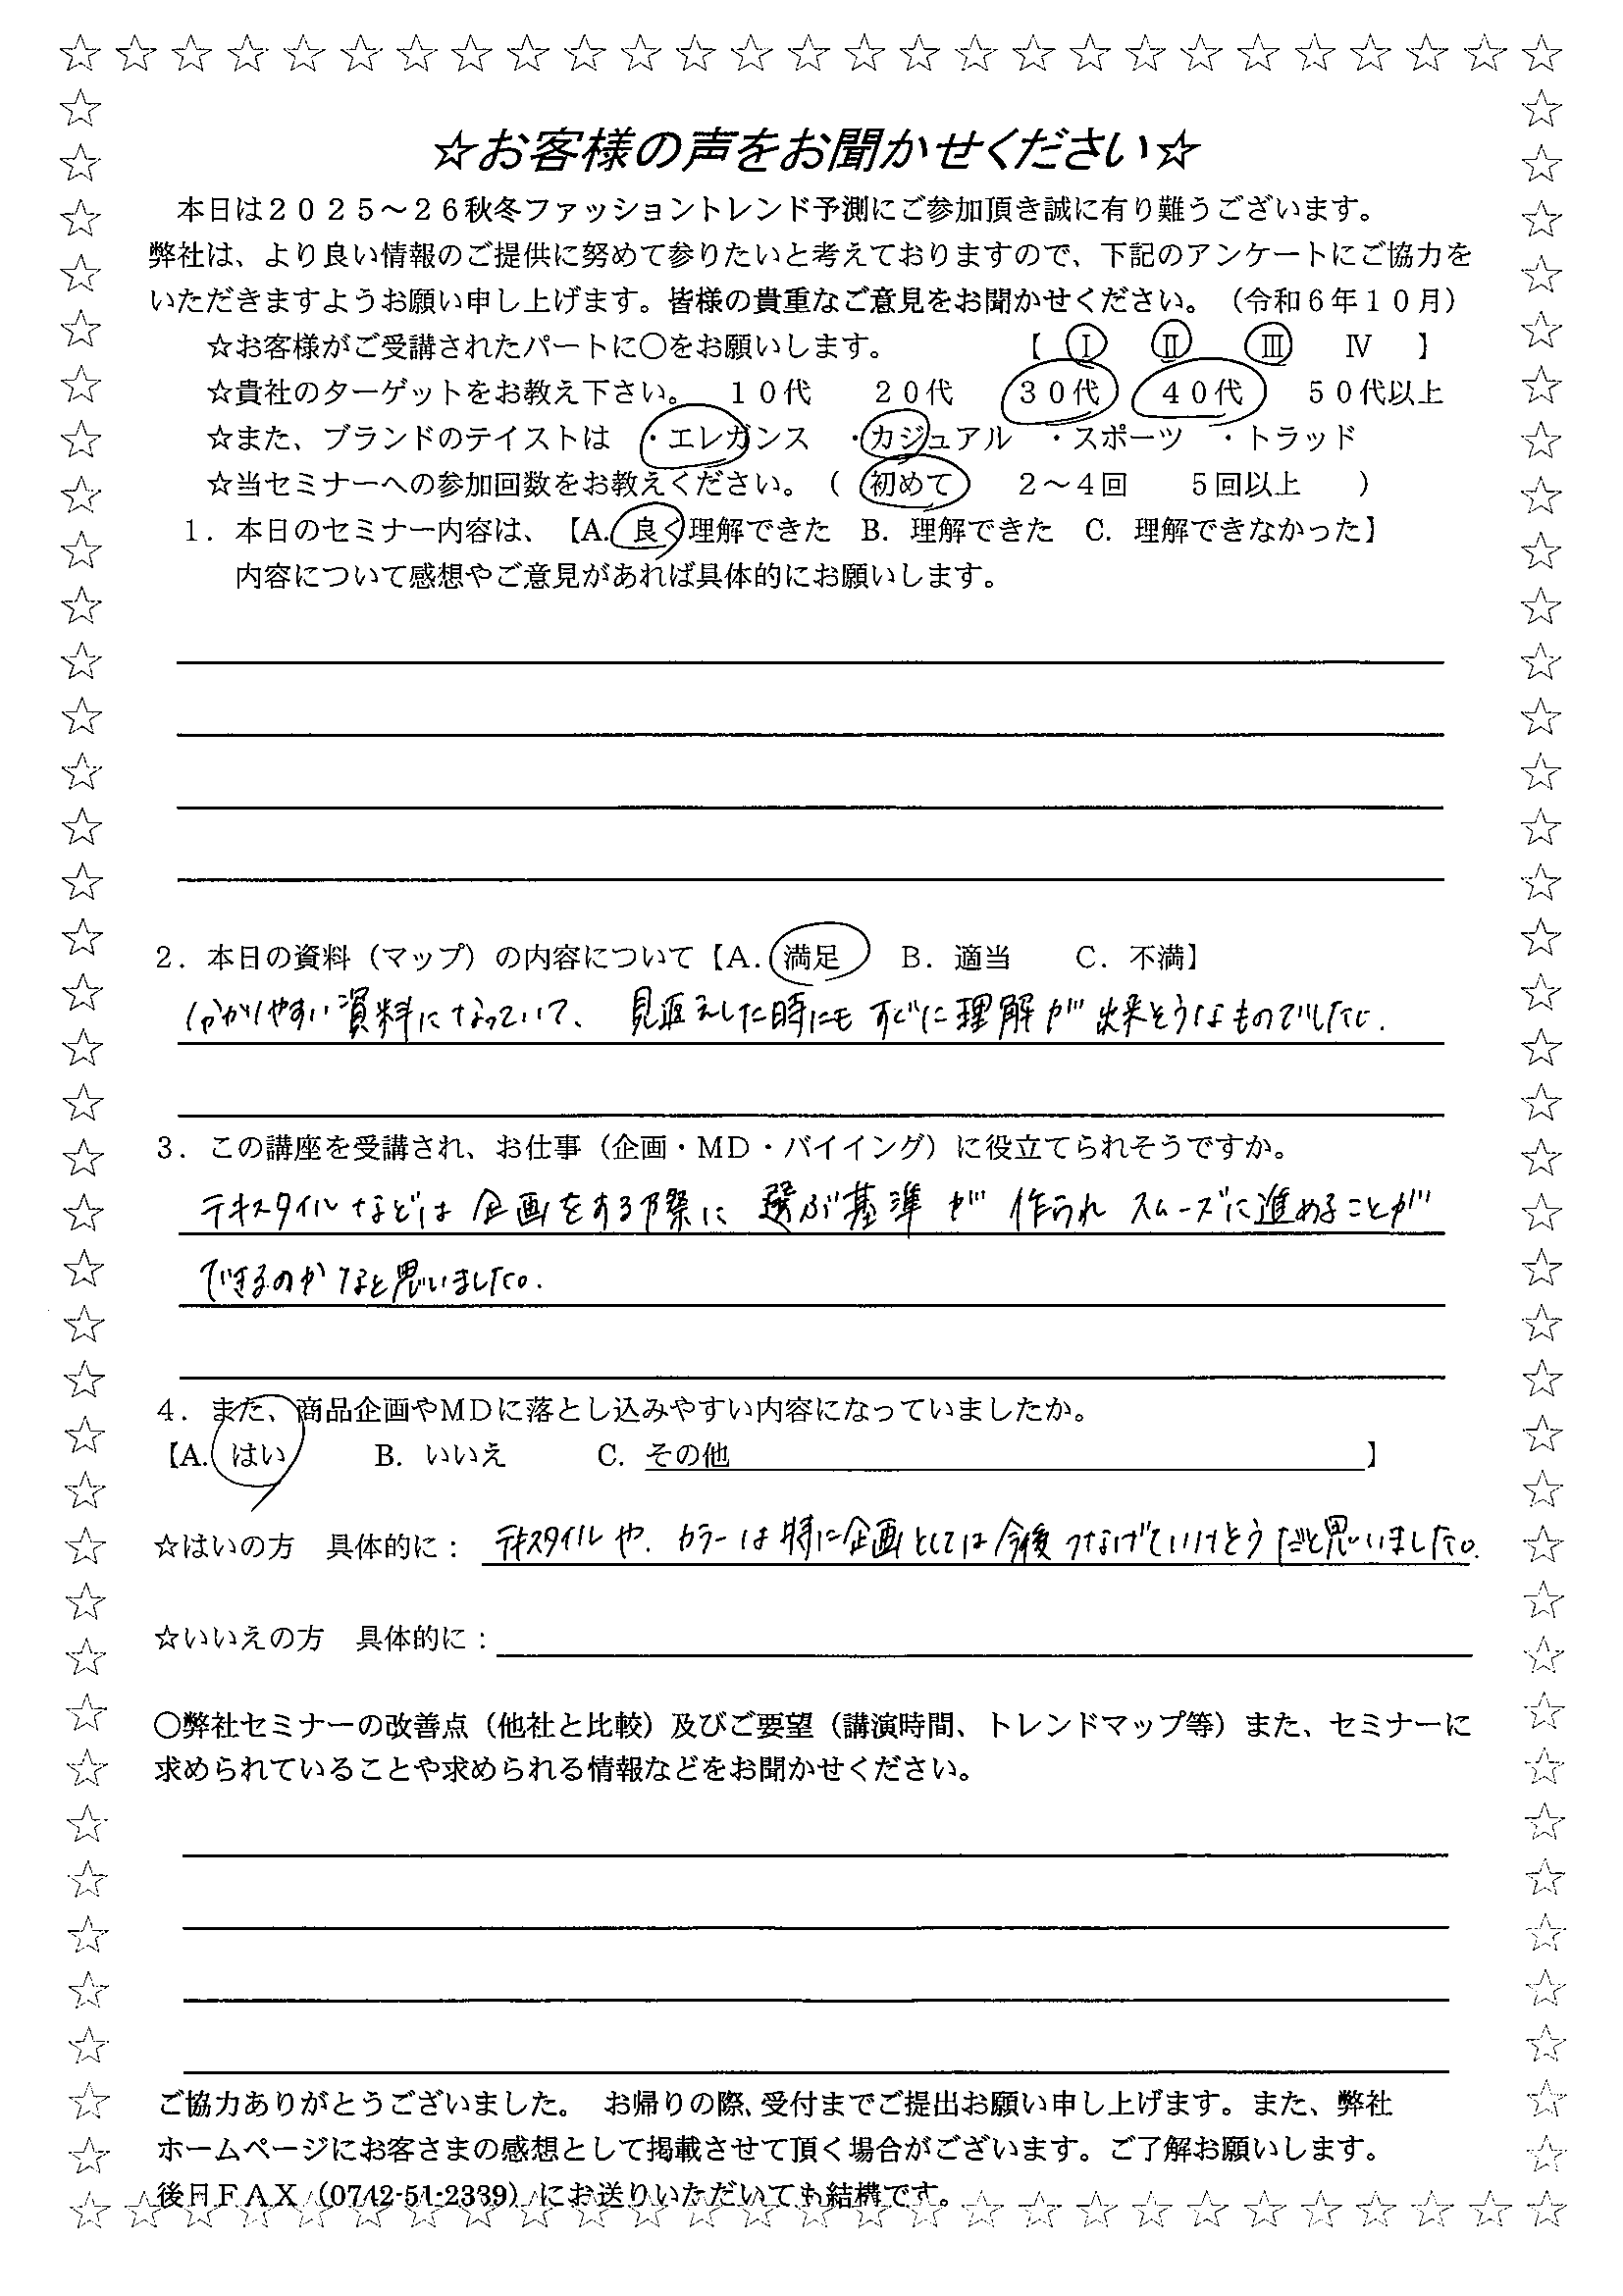 ☆お客様の声をお聞かせください☆
本日は２０２５～２６秋冬ファッショントレンド予測にご参加頂き誠に有り難うございます。
弊社は、より良い情報のご提供に努めて参りたいと考えておりますので、下記のアンケートにご協力を
いただきますようお願い申し上げます。皆様の貴重なご意見をお聞かせください。（令和６年１０月）
☆お客様がご受講されたパートに○をお願いします。 【 Ⅰ Ⅱ Ⅲ Ⅳ 】
☆貴社のターゲットをお教え下さい。 １０代 ２０代 ３０代 ４０代 ５０代以上
☆また、ブランドのテイストは ・エレガンス ・カジュアル ・スポーツ ・トラッド
☆当セミナーへの参加回数をお教えください。（ 初めて ２～４回 ５回以上 ）
１．本日のセミナー内容は、【A. 良く理解できた B. 理解できた C. 理解できなかった】
内容について感想やご意見があれば具体的にお願いします。
２．本日の資料（マップ）の内容について【A. 満足 B. 適当 C. 不満】
分かりやすい資料になっていて、見返えした時にもすぐに理解が出来そうなものでした。
３．この講座を受講され、お仕事（企画・MD・バイイング）に役立てられそうですか。
テキスタイルなどは企画をする際に選ぶ基準が作られスムーズに進めることが
できるのかなと思いました。
４．また、商品企画やMDに落とし込みやすい内容になっていましたか。
【A. はい B. いいえ C. その他 】
☆はいの方 具体的に： テキスタイルや、カラーは特に企画としては今後つなげていけそうだと思いました。
☆いいえの方 具体的に：
○弊社セミナーの改善点（他社と比較）及びご要望（講演時間、トレンドマップ等）また、セミナーに
求められていることや求められる情報などをお聞かせください。
ご協力ありがとうございました。 お帰りの際、受付までご提出お願い申し上げます。また、弊社
ホームページにお客さまの感想として掲載させて頂く場合がございます。ご了解お願いします。
後日ＦＡＸ（0742-51-2339）にお送りいただいても結構です。